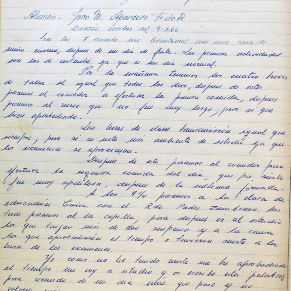 Alumno: José M. Aparicio F. de P.
Diario Escolar del 9-
A las 7 cuando nos levantamos con una cara de
sueño enorme, después de un día de fiesta. Las primeras actividades
son las de costumbre ya que es un día normal.
Por la mañana tenemos los cuatro horas
de clase al igual que todos los días, después de estas
pasamos al comedor a efectuar la primera comida, después
pasamos al recreo que no fue muy largo, pero si que
bien aprobechado.
Las horas de clase transcurrieron igual que
siempre, pero si se nota más ambiente de estudio ya que
los exámenes se aproximan.
Después de este pasamos al comedor para
efectuar la segunda comida del día, que por cierto
fue muy apetitosa, después de la última jornada.
A las 9¼ pasamos a la clase de
educación Cívica con el Rdo. Padre
tarde pasamos a la capilla, para después ir al estudio
lo que tengan mas de dos suspensos y a la cama
los que aprovecharon el tiempo o tuvieron suerte a la
hora de los exámenes.
Yo como no he tenido suerte ni he aprobechado
el tiempo me voy a estudio y os escribo estas palabras,
por recuerdo de un día más que paso y no